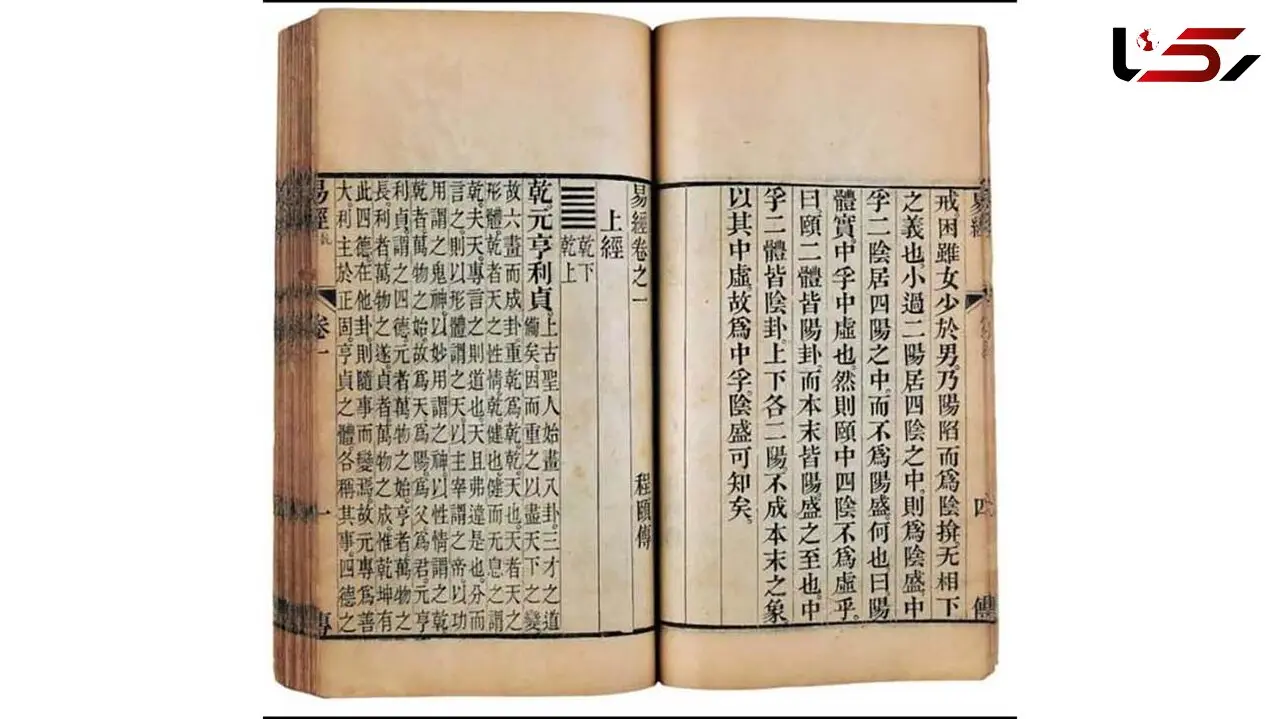 易經 四 傳
戒。困雖女少於男。乃陽陷而爲陰揜无相下
之義也。小過二陽居四陰之中。則爲陰盛。中
孚二陰居四陽之中。而不爲陽盛何也。曰。陽
體實。中孚中虛也。然則頤中四陰不爲虛乎。
曰。頤二體皆陽卦。而本末皆陽盛之至也。中
孚二體皆陰卦。上下各二陽。不成本末之象。
以其中虛。故爲中孚。陰盛可知矣。
易經卷之一 程頤傳
上經
乾下
乾上
乾。元亨利貞。上古聖人始畫八卦。三才之道
備矣。因而重之以盡天下之變
故六畫而成卦。重乾爲乾。乾天也。天者天之
形體。乾者天之性情。乾健也。健而无息之謂
乾。夫天。專言之則道也。天且弗違是也。分而
言之。則以形體謂之天。以主宰謂之帝。以功
用謂之鬼神。以妙用謂之神。以性情謂之乾
乾者。萬物之始。故爲天。爲陽。爲父。爲君。元亨
利貞。謂之四德。元者萬物之始。亨者萬物之
長。利者萬物之遂。貞者萬物之成。惟乾坤有
此四德。在他卦則隨事而變焉。故元專爲善
大。利主於正固。亨貞之體。各稱其事。四德之
易經 乾 卷一 一 傳